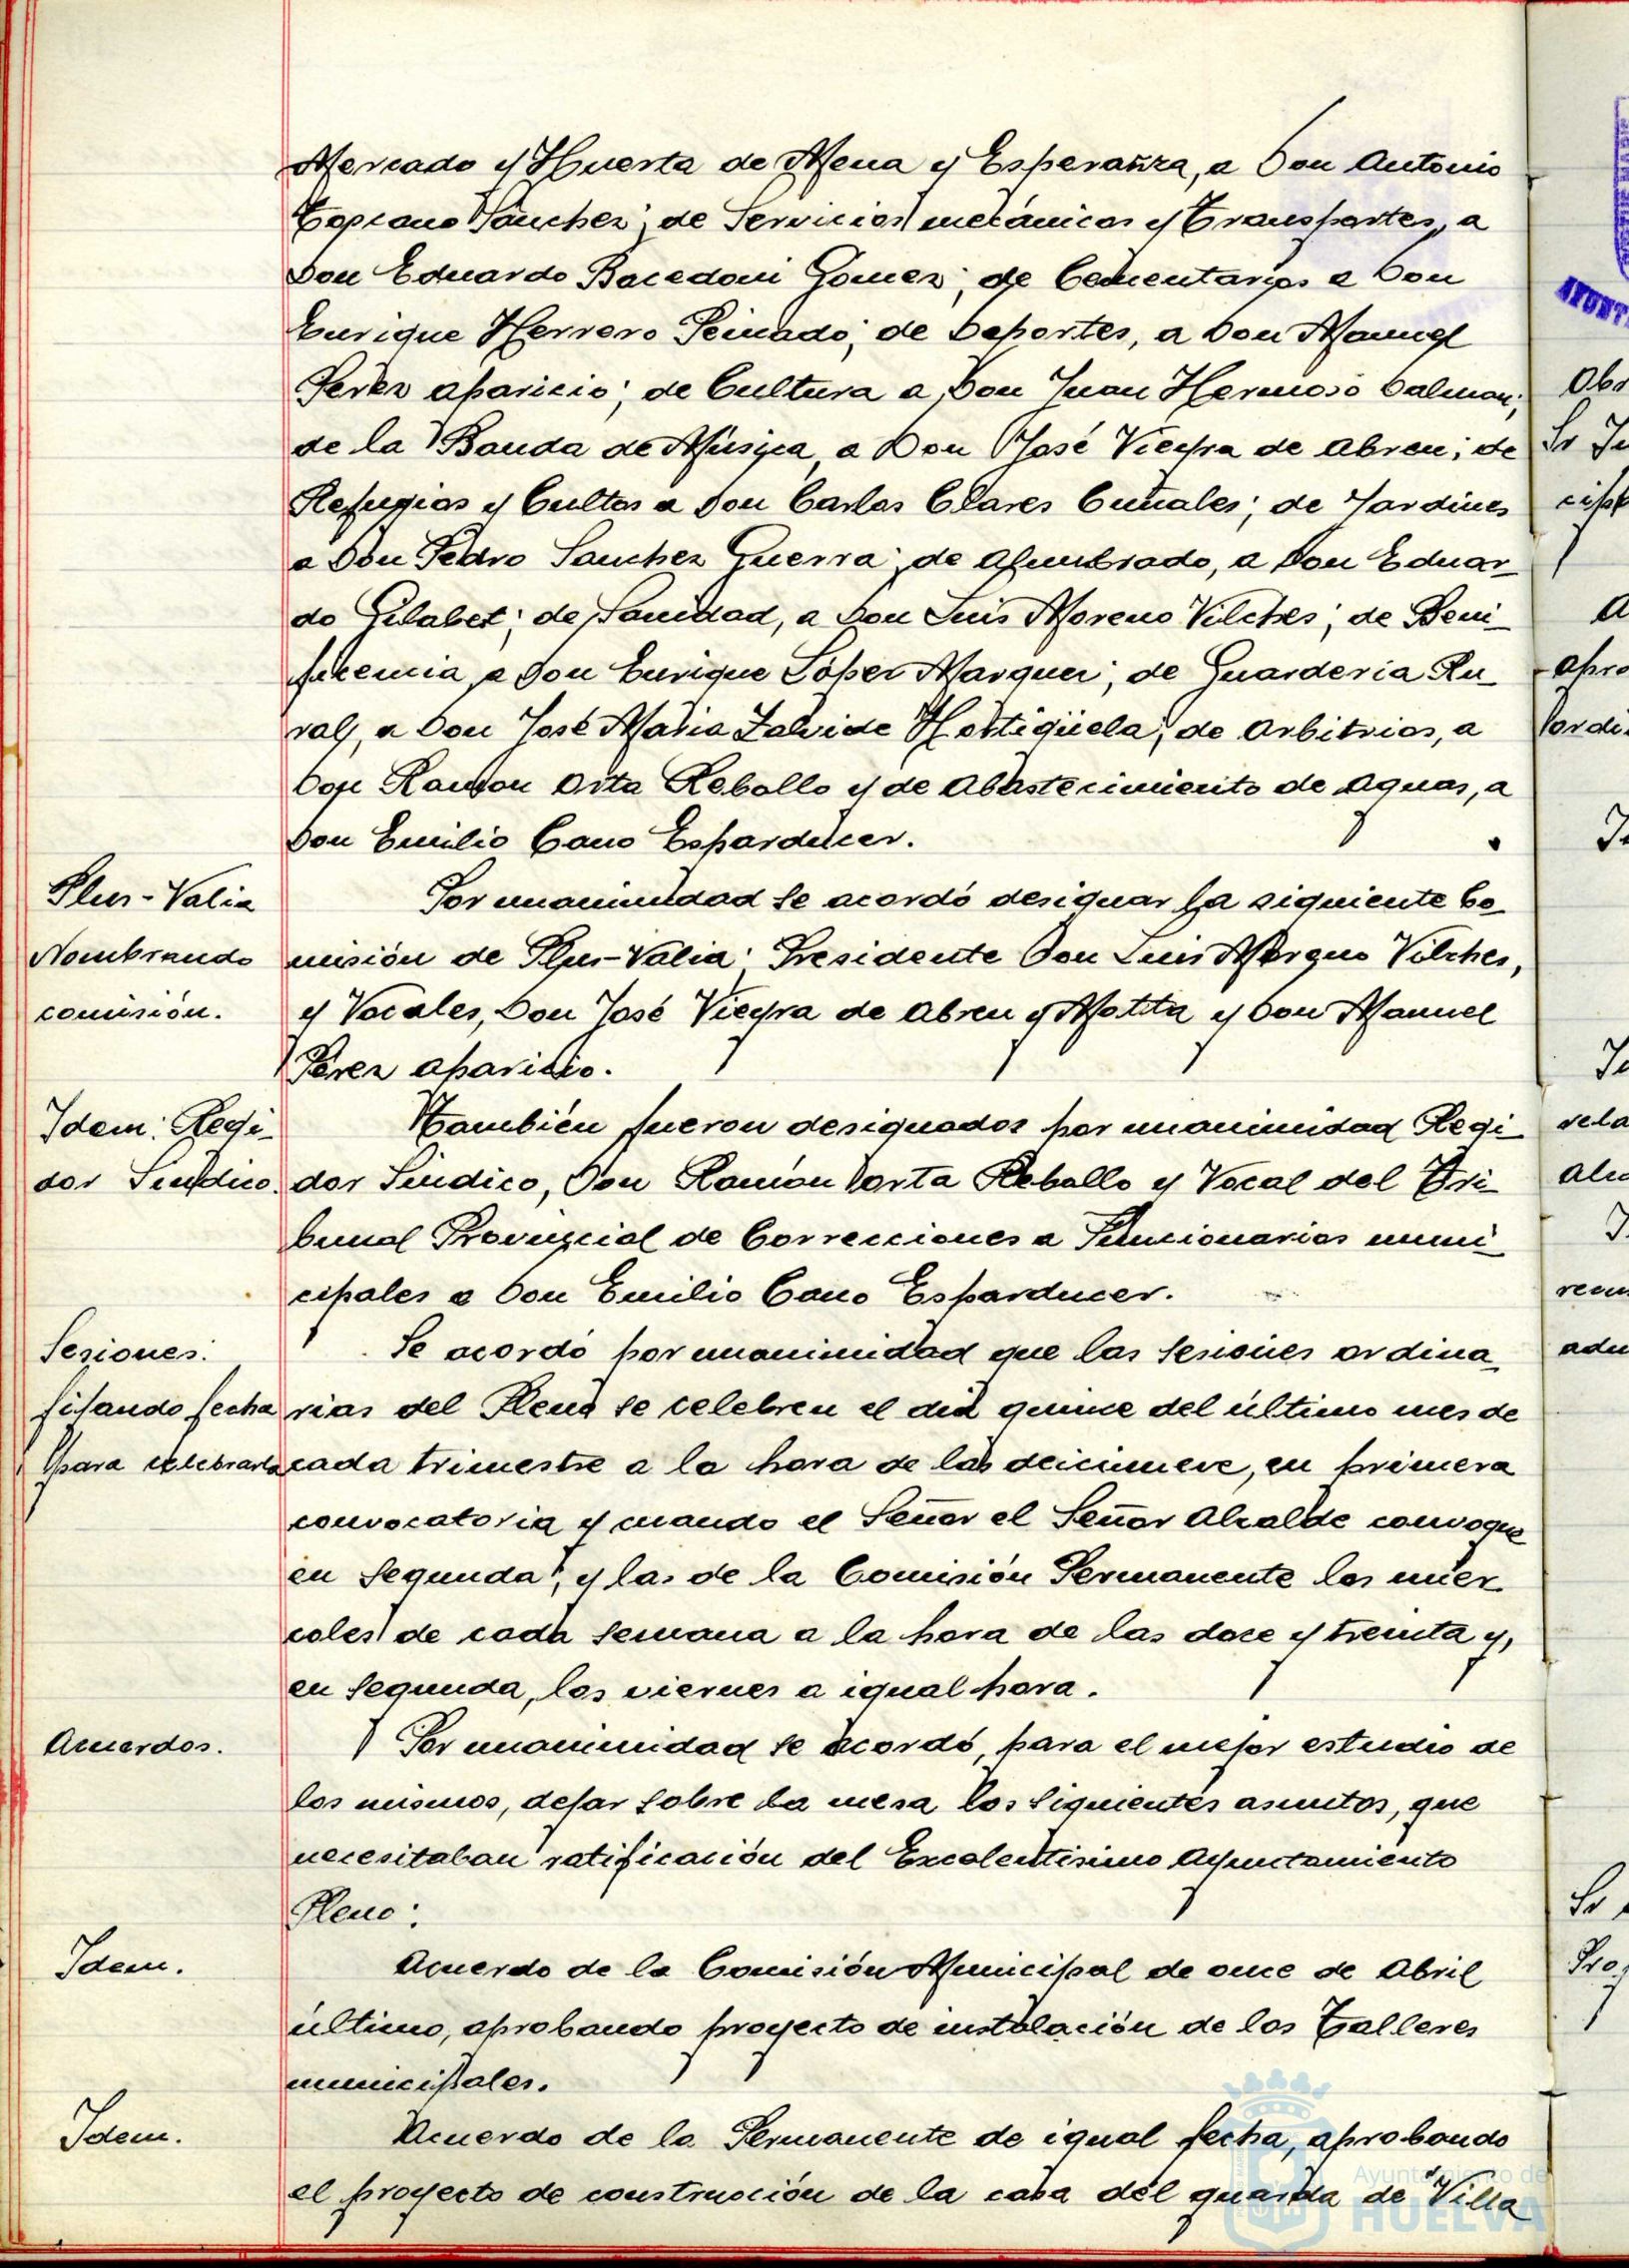 Mercado y Huerta de Mena y Esperanza, a Don Antonio
Toscano Sánchez; de Servicios mecánicos y Transportes, a
Don Eduardo Bacedoni Gomez; de Cementarios a Don
Enrique Herrero Peinado; de Deportes, a Don Manuel
Perez Aparicio; de Cultura a Don Juan Hermoso Dalmau;
de la Banda de Música, a Don José Vieyra de Abreu; de
Refugios y Cultos a Don Carlos Clares Cuñales; de Jardines
a Don Pedro Sanchez Guerra; de Alumbrado, a Don Eduar-
do Gilabet; de Sanidad, a Don Luis Moreno Vilches; de Beni-
ficencia, a Don Enrique López Marquez; de Guarderia Ru-
ral, a Don José Maria Zalvide Hortigüela; de Arbitrios, a
Don Ramon Orta Rebollo y de Abastecimiento de Aguas, a
Don Emilio Cano Esparducer.
Plus-Valia
Nombrando
comisión.
Por unanimidad se acordó designar la siguiente Co-
misión de Plus-Valia: Presidente Don Luis Moreno Vilches,
y Vocales, Don José Vieyra de Abreu y Motta y Don Manuel
Pérez Aparicio.
Idem: Regi-
dor Sindico.
También fueron designados por unanimidad Regi-
dor Sindico, Don Ramón Orta Rebollo y Vocal del Tri-
bunal Provincial de Correcciones a Funcionarios muni-
cipales a Don Emilio Cano Esparducer.
Sesiones:
fijando fecha
para celebrarla
Se acordó por unanimidad que las sesiones ordina-
rias del Pleno se celebren el dia quince del último mes de
cada trimestre a la hora de las deicinueve, en primera
convocatoria y cuando el Señor el Señor Alcalde convoque
en segunda; y las de la Comisión Permanente los miér-
coles de cada semana a la hora de las doce y treinta y,
en segunda, los viernes a igual hora.
Acuerdos.
Por unanimidad se acordó, para el mejor estudio de
los mismos, dejar sobre la mesa los siguientes asuntos, que
necesitaban ratificación del Excelentisimo Ayuntamiento
Pleno:
Idem.
Acuerdo de la Comisión Municipal de once de Abril
último, aprobando proyecto de instalación de los Talleres
municipales.
Idem.
Acuerdo de la Permanente de igual fecha, aprobando
el proyecto de construcción de la casa del guarda de "Villa
Ayuntamiento de
HUELVA